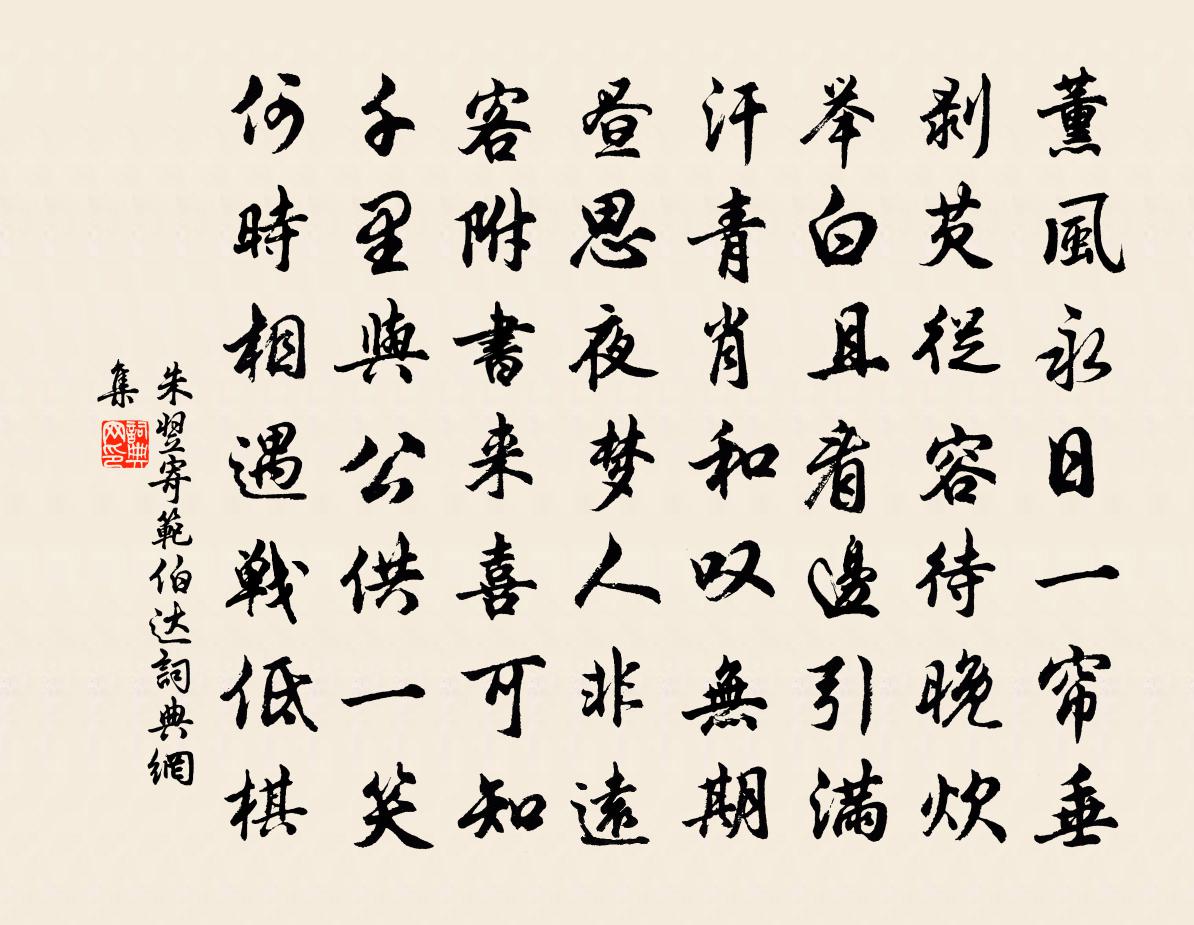 薰風永日一帘垂
剥芡從容待晚炊
举白且看邊引滿
汗青肖和叹無期
昼思夜梦人非遠
客附書来喜可知
千里與公供一笑
何時相遇戦低棋
朱翌寄範伯达詞典網
集
詞典网印